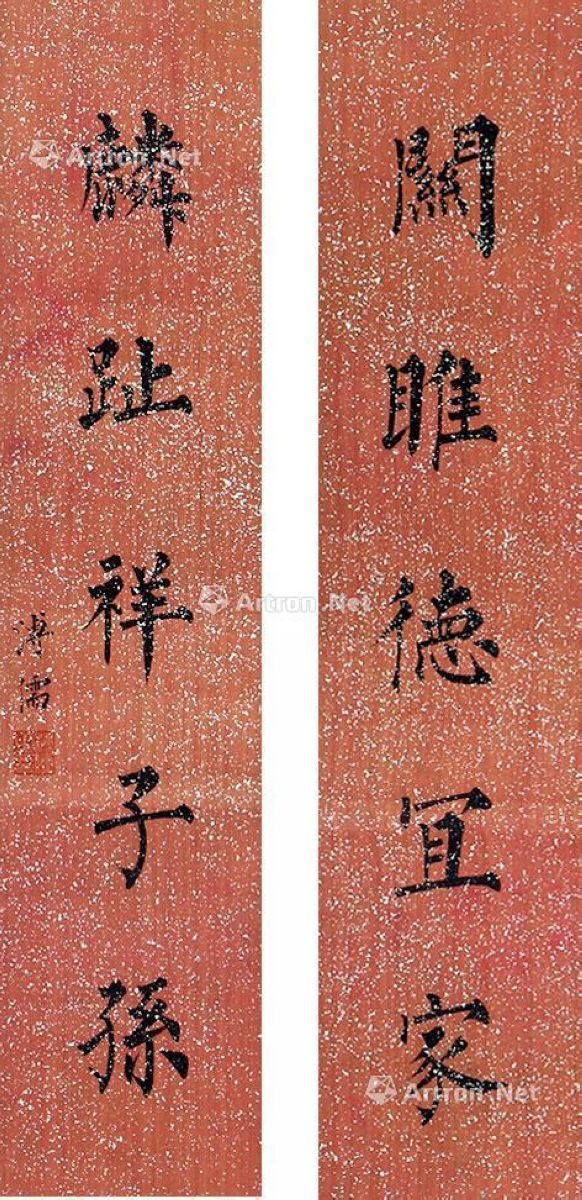 關雎德宜家
麟趾祥子孫
溥儒
Artron.Net
Artron.Net
Artron.Net
Artron.Net